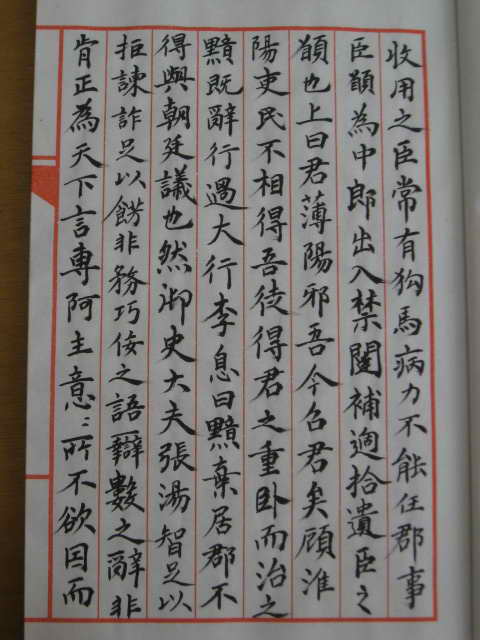 收用之臣常有狗馬病力不能任郡事
臣願為中郎出入禁闥補過拾遺臣之
願也上曰君薄陽邪吾今召君矣顧淮
陽吏民不相得吾徒得君之重臥而治之
黯既辭行過大行李息曰黯棄居郡不
得與朝廷議也然御史大夫張湯智足以
拒諫詐足以餝非務巧佞之語辯數之辭非
肯正為天下言專阿主意〻所不欲因而